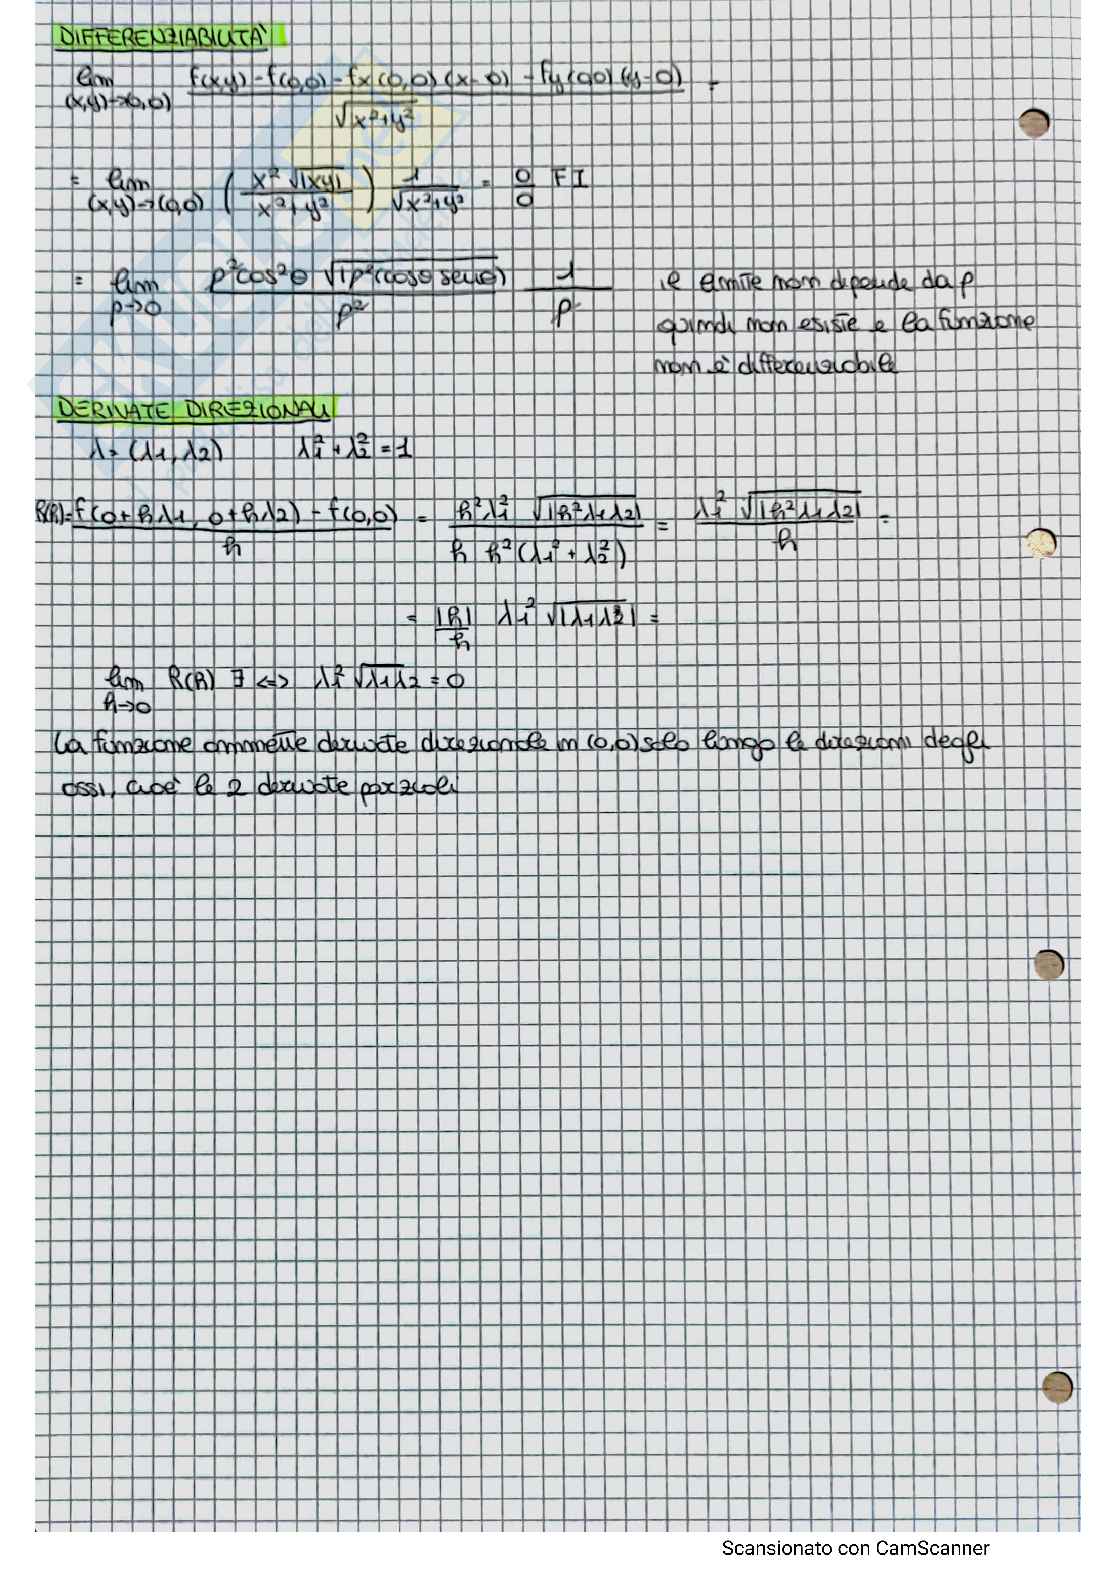 DIFFERENZIABILITA'
lim (x,y)→(0,0) f(x,y) - f(0,0) - fx(0,0)(x-0) - fy(0,0)(y-0) / √x²+y² =
= lim (x,y)→(0,0) ( x² √|xy| / x²+y² ) 1 / √x²+y² = 0/0 FI
= lim ρ→0 ρ²cos²θ √|ρ²(cosθ senθ) / ρ² 1/ρ il limite non dipende da ρ
quindi non esiste e la funzione
non è differenziabile
DERIVATE DIREZIONALI
λ = (λ1, λ2) λ1² + λ2² = 1
R(h) = f(0+hλ1, 0+hλ2) - f(0,0) / h = h²λ1² √|h²λ1λ2| / h h²(λ1² + λ2²) = λ1² √|h²λ1λ2| / h =
= |h|/h λ1² √|λ1λ2| =
lim h→0 R(h) ∃ <=> λ1² √λ1λ2 = 0
La funzione ammette derivate direzionale in (0,0) solo lungo le direzioni degli
assi, cioè le 2 derivate parziali
Scansionato con CamScanner